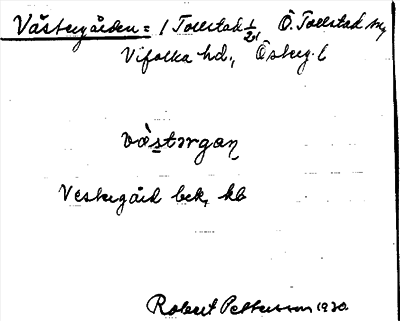 Västergården = 1 Tollstad 1/2, Ö. Tollstad sn,
Vifolka hd., Österg. l
vàstərgaɳ
Vestergård bek, kb
Robert Pettersson 1930.